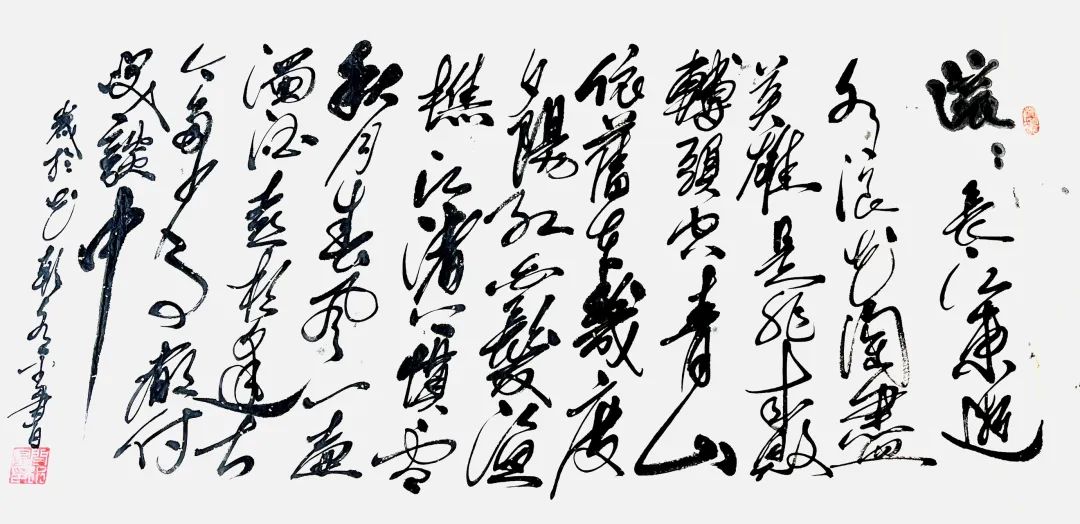 滚〻長江東逝
水浪花淘盡
英雄是非成敗
轉頭空青山
依舊在幾度
夕陽紅白髮漁
樵江渚上慣看
秋月春風一壺
濁酒喜相逢古
今多少事都付
笑談中
歲於書